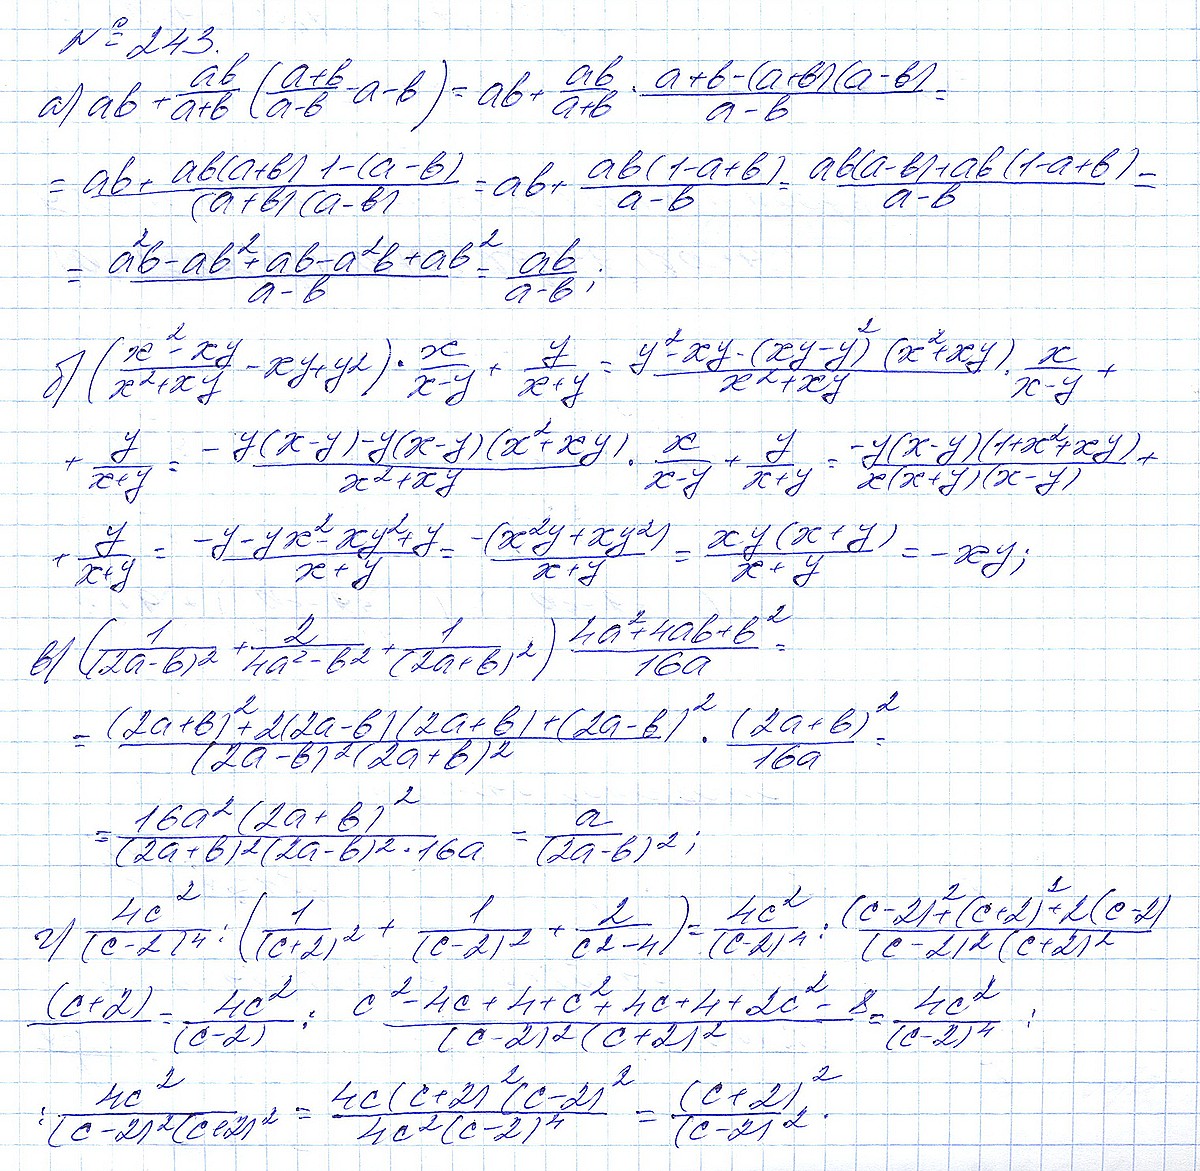 № 243.
а) ab + ab/(a+b) ((a+b)/(a-b) - a - b) = ab + ab/(a+b) · (a+b-(a+b)(a-b))/(a-b) =
= ab + (ab(a+b) 1-(a-b))/((a+b)(a-b) = ab + (ab(1-a+b))/(a-b) = (ab(a-b)+ab(1-a+b))/(a-b) =
= (a²b-ab²+ab-a²b+ab²)/(a-b) = ab/(a-b);
б) ((x²-xy)/(x²+xy) - xy+y2) · x/(x-y) + y/(x+y) = (y²-xy-(xy-y)²(x²+xy))/(x²+xy) · x/(x-y) +
+ y/(x+y) = (-y(x-y)-y(x-y)(x²+xy))/(x²+xy) · x/(x-y) + y/(x+y) = (-y(x-y)(1+x²+xy))/(x(x+y)(x-y)) +
+ y/(x+y) = (-y-yx²-xy²+y)/(x+y) = (-(x²y+xy²))/(x+y) = (xy(x+y))/(x+y) = -xy;
в) (1/(2a-b)² + 2/(4a²-b²) + 1/(2a+b)²) (4a²+4ab+b²)/16a =
= ((2a+b)²+2(2a-b)(2a+b)+(2a-b)²)/((2a-b)²(2a+b)²) · (2a+b)²/16a =
= (16a²(2a+b)²)/((2a+b)²(2a-b)²·16a) = a/(2a-b)²;
г) 4c²/(c-2)⁴ : (1/(c+2)² + 1/(c-2)² + 2/(c2-4)) = 4c²/(c-2)⁴ : ((c-2)²+(c+2)²+2(c-2)/((c-2)²(c+2)²
(c+2) = 4c²/(c-2) : (c²-4c+4+c²+4c+4+2c²-8)/((c-2)²(c+2)²) = 4c²/(c-2)⁴ :
: 4c²/((c-2)²(c+2)²) = (4c(c+2)²(c-2)²)/(4c²(c-2)⁴) = (c+2)²/(c-2)².